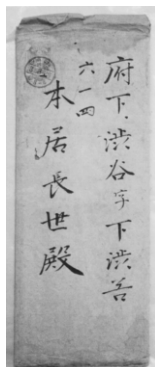 府下、渋谷字下渋谷
六一四
本居長世殿